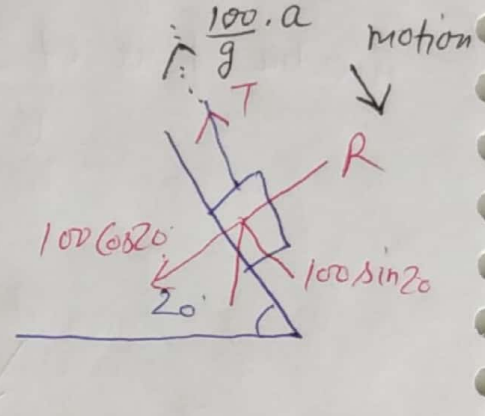 100.a
g
motion
T
R
100 Cos20
100 sin20
20